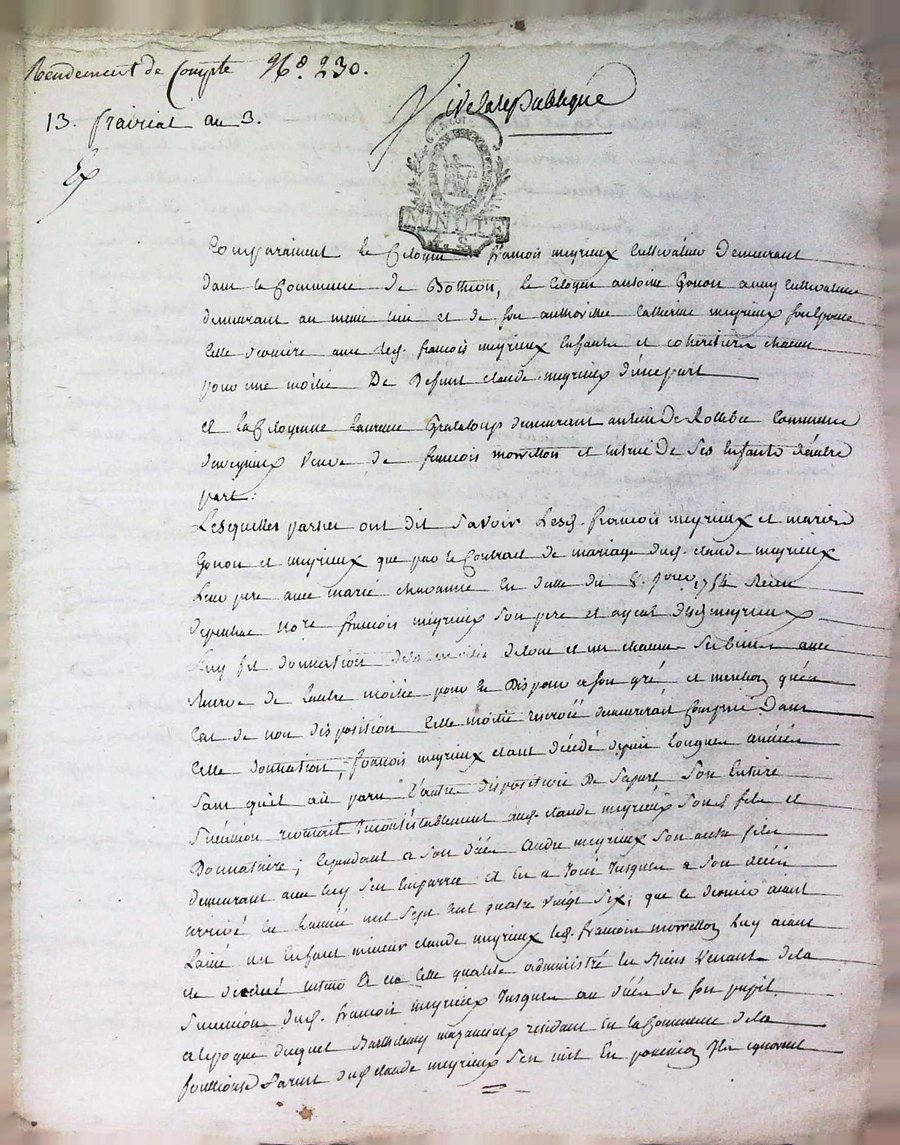 Rendement de Compte N.º 230.
13. prairial an 3.
Vive la republique
MINUTE
Comparaissent le Citoyen francois meyrieux Cultivateur Demeurant
dans la Commune de Bothéon, le Citoyen antoine Gonon aussy Cultivateur
demeurant au meme lieu et de son authorité Catherine meyrieux son Epouse
Cette derniere avec led. francois meyrieux Enfants et coheritiers chacun
pour une moitié De Defunt claude meyrieux d'une part
et la Citoyenne Laurence Grataloup demeurant au lieu De Commune
de veyrieux veuve de francois morrellon et tutrice De Ses Enfants d'autre
part:
Lesquelles parties ont dit Savoir Lesd. francois meyrieux et mariés
Gonon et meyrieux que par le Contrat de mariage dud. claude meyrieux
Leur pere avec marie chavanne En datte du 8. 1754 Recu
francois meyrieux Son pere et ayeul desd. meyrieux
Luy fit donnation de la moitié de tous et un chacun Ses biens avec
Reserve de l'autre moitié pour En Disposer a son gré et mention qu'en
Cas de non disposition Cette moitié reservée demeurerait Comprise Dans
Cette donnation; francois meyrieux etant décédé depuis longues années
Sans qu'il ait paru d'autre disposition De Sa part Son Entiere
Succession revenait Incontestablement aud. claude meyrieux Son fils et
Donnataire; Cependant a Son décès andré meyrieux Son autre fils
demeurant avec luy S'en Empara et En a Joui Jusques a Son décès
arrivé En L'année mil Sept Cent quatre vingt Six; que ce dernier aiant
Laissé un Enfant mineur claude meyrieux led. francois morrellon Luy aiant
été décerné tuteur Il a En Cette qualité administré les Biens Venants de la
Succession dud. francois meyrieux Jusques au décès de Son pupil
a l'epoque duquel Barthelemy résidant En la Commune de la
fouillouse Parent dud. claude meyrieux S'en mit En possession Ils ignorent